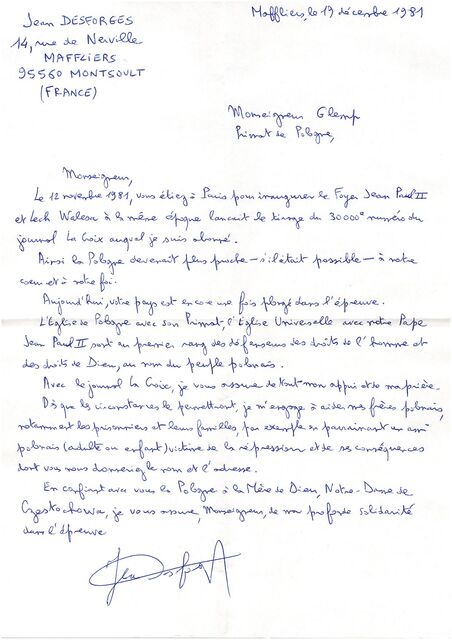 Jean DESFORGES
14, rue de Nerville
MAFFLIERS
95560 MONTSOULT
(FRANCE)
Maffliers, le 19 décembre 1981
Monseigneur Glemp
Primat de Pologne,
Monseigneur,
Le 12 novembre 1981, vous étiez à Paris pour inaugurer le Foyer Jean Paul II
et Lech Walesa à la même époque lançait le tirage du 30000e numéro du
journal La Croix auquel je suis abonné.
Ainsi la Pologne devenait plus proche - s'il était possible - à notre
coeur et à notre foi.
Aujourd'hui, votre pays est encore une fois plongé dans l'épreuve.
L'Église de Pologne avec son Primat, l'Église Universelle avec notre Pape
Jean Paul II sont au premier rang des défenseurs des droits de l'homme et
des droits de Dieu, au nom du peuple polonais.
Avec le journal La Croix, je vous assure de tout mon appui et de ma prière.
Dès que les circonstances le permettront, je m'engage à aider mes frères polonais,
notamment les prisonniers et leurs familles, par exemple en parrainant un ami
polonais (adulte ou enfant) victime de la répression et de ses conséquences
dont vous nous donneriez le nom et l'adresse.
En confiant avec vous la Pologne à la Mère de Dieu, Notre-Dame de
Częstochowa, je vous assure, Monseigneur, de ma profonde solidarité
dans l'épreuve